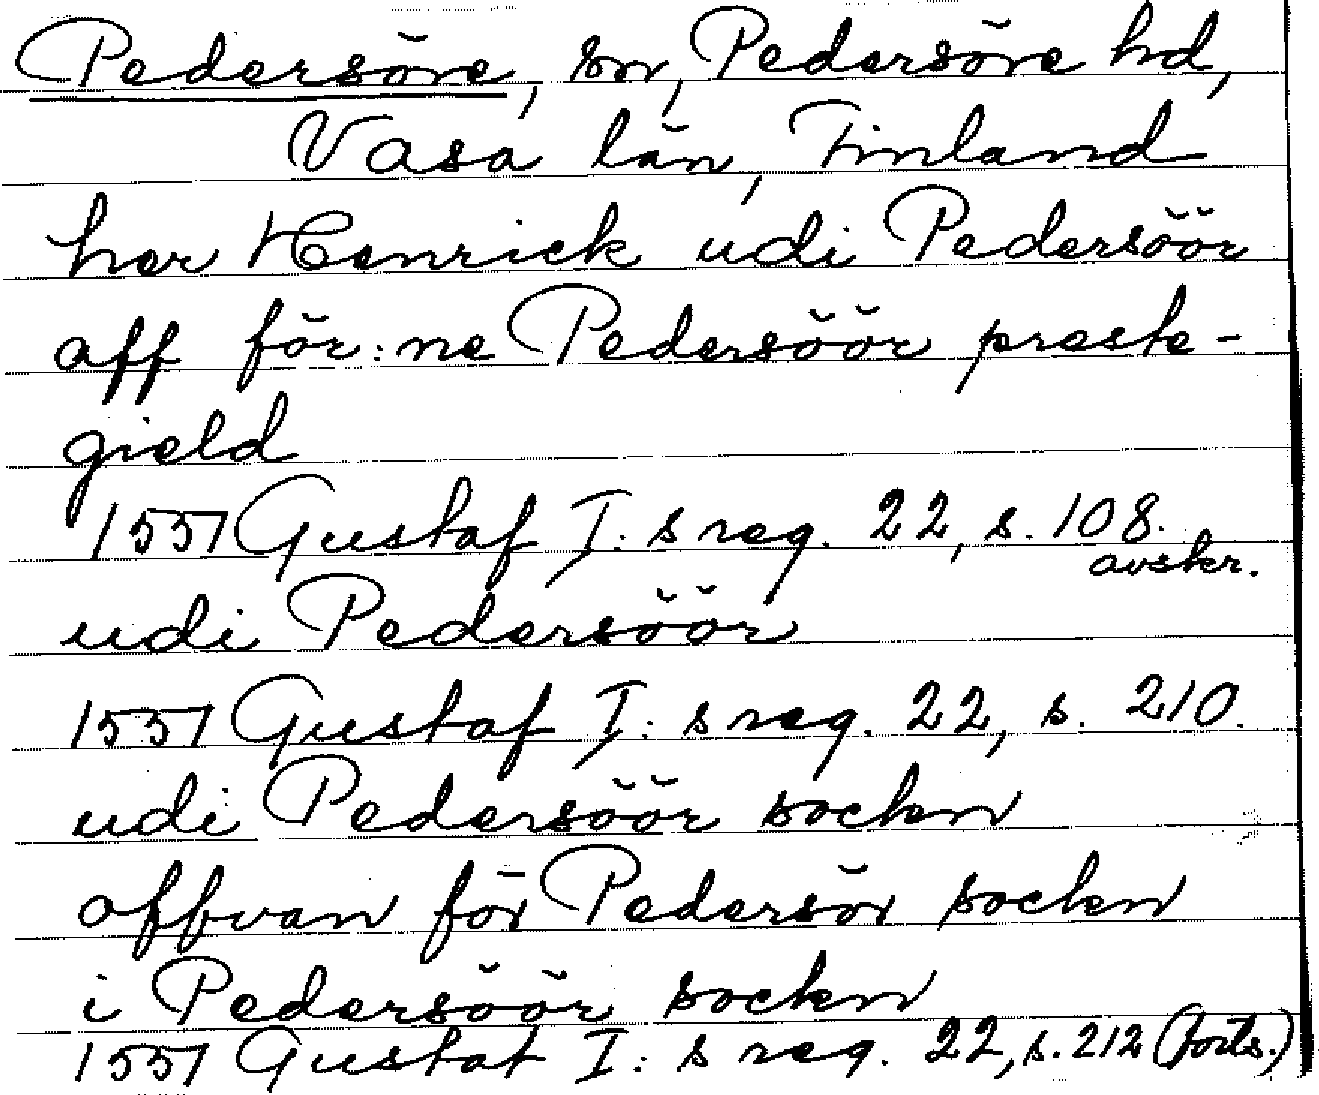 Pedersöre, sn, Pedersöre hd,
Vasa län, Finland
her Henrick udi Pedersöör
aff för:ne Pedersöör preste-
gield
1551 Gustaf I:s reg. 22, s. 108.
avskr.
udi Pedersöör
1551 Gustaf I:s reg. 22, s. 210.
udi Pedersöör sockn
offvan för Pedersör sockn
i Pedersöör sockn
1551 Gustaf I:s reg. 22, s. 212 (forts.)